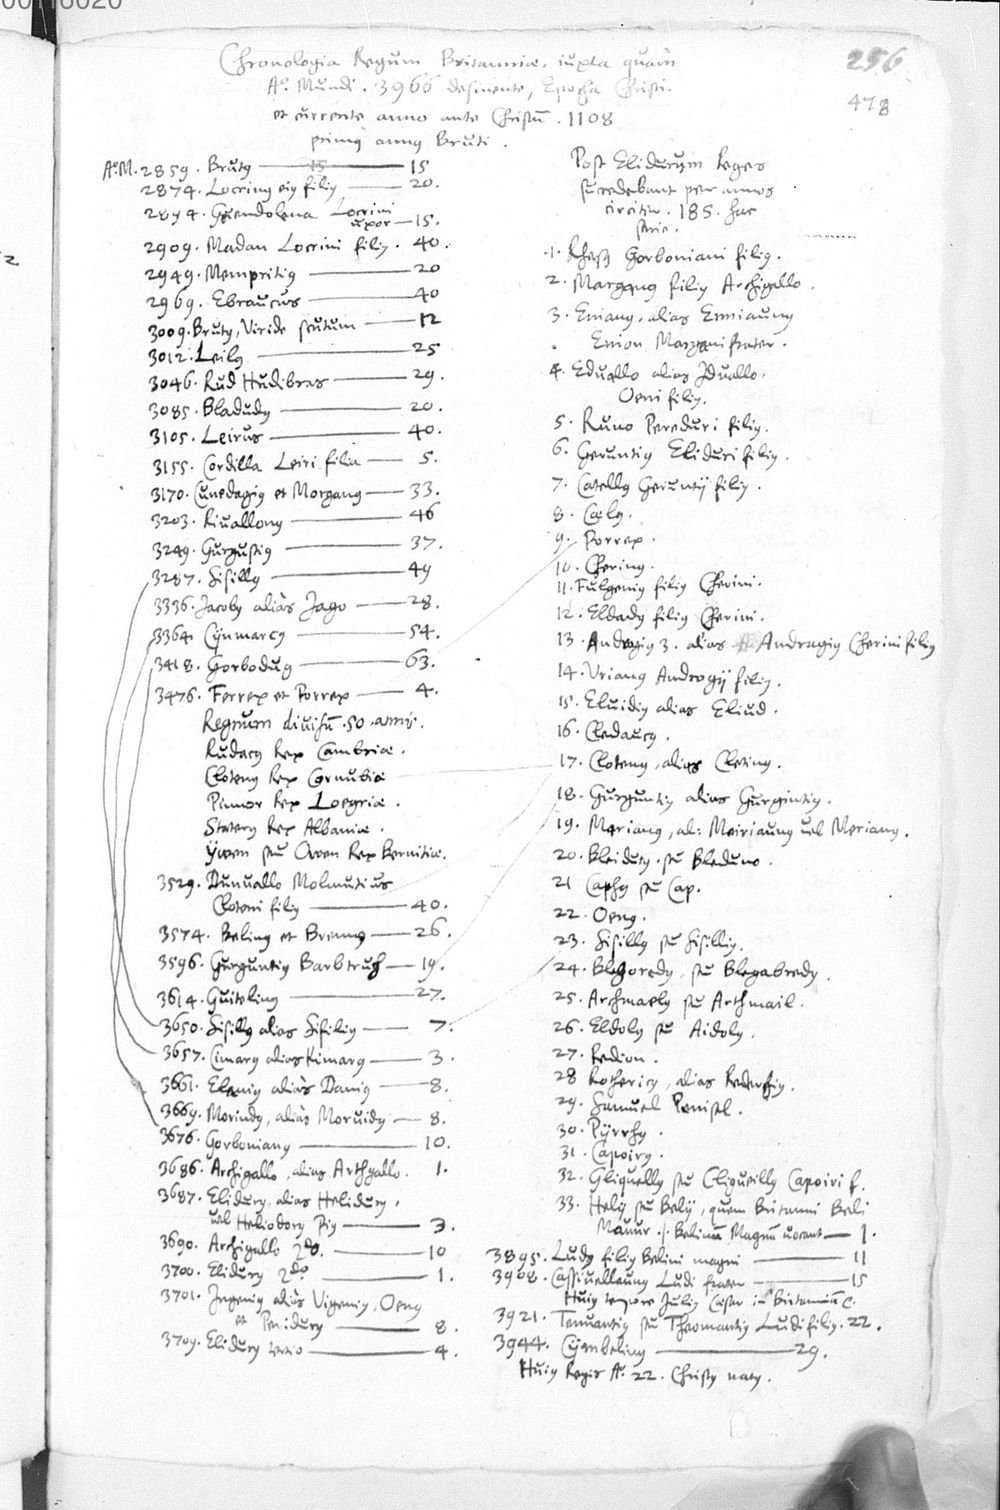 00118020
256
478
Chronologia Regum Britanniæ, iuxta quam
Ao. Mundi. 3966 desinente, Epocha Christi.
et currente anno ante Christū. 1108
primꝰ annꝰ Bruti.
A.M. 2859. Brutꝰ 15
2874. Locrinꝰ eiꝰ filiꝰ 20.
2894. Guendolena Locrini
uxor 15.
2909. Madan Locrini filiꝰ. 40.
2949. Mempritiꝰ 20
2969. Ebraucus 40
3009. Brutꝰ, Viride scutum 12
3012. Leilꝰ 25
3046. Rud Hudibras 29.
3085. Bladudꝰ 20.
3105. Leirus 40.
3155. Cordilla Leiri filia 5.
3170. Cunedagiꝰ et Morganꝰ 33.
3203. Riuallonꝰ 46
3249. Gurgustiꝰ 37.
3287. Sisillꝰ 49
3336. Jacobꝰ aliàs Jago 28.
3364. Cynmarcꝰ 54.
3418. Gorbodug 63.
3476. Ferrex et Porrex 4.
Regnum diuisū. 50. annis.
Rudacꝰ Rex Cambriæ.
Clotenꝰ Rex Cornubiæ
Pinnor Rex Loegriæ.
Staterꝰ Rex Albaniæ.
Ywen seu Owen Rex Bernitiæ.
3529. Dunuallo Molmutius
Cloteni filiꝰ 40.
3574. Belinꝰ et Brennꝰ 26.
3596. Gurguntiꝰ Barbtruch 19.
3614. Guitelinꝰ 27.
3650. Sisillꝰ alias Sifiliꝰ 7.
3657. Cimarꝰ alias Kimarꝰ 3.
3661. Elaniꝰ aliàs Daniꝰ 8.
3669. Morindꝰ, aliàs Moruidꝰ 8.
3676. Gorbonianꝰ 10.
3686. Archigallo, alias Arthgallo. 1.
3687. Elidurꝰ, alias Helidurꝰ,
uel Heliodorꝰ Piꝰ 3.
3690. Archigallo 2do. 10
3700. Elidurꝰ 2do 1.
3701. Jugeniꝰ aliàs Vigeniꝰ, Oenꝰ
et Peridurꝰ 8.
3709. Elidurꝰ tertio 4.
Post Elidurum Reges
succedebant per annos
circiter. 185. hac
serie.
1. Rhesꝰ Gorboniani filiꝰ.
2. Marganꝰ filiꝰ Archigallo.
3. Enianꝰ, alias Enniaunꝰ
Enion Margani frater.
4. Eduallo alias Iduallo.
Oeni filiꝰ.
5. Runo Pereduri filiꝰ.
6. Geruntiꝰ Eliduri filiꝰ.
7. Catellꝰ Geruntij filiꝰ.
8. Cælꝰ.
9. Porrex.
10. Cherinꝰ.
11. Fulgeniꝰ filiꝰ Cherini.
12. Eldadꝰ filiꝰ Cherini.
13. Androgiꝰ 3. alias Andragiꝰ Cherini filiꝰ
14. Vrianꝰ Androgij filiꝰ.
15. Eluidiꝰ alias Eliud.
16. Cledaucꝰ.
17. Clotenꝰ, alias Cletinꝰ.
18. Gurguntiꝰ alias Gurgintiꝰ.
19. Merianꝰ, al: Meiriaunꝰ uel Morianꝰ.
20. Bleidutꝰ. seu Bleduno.
21 Caphꝰ seu Cap.
22. Oenꝰ.
23. Sisillꝰ seu Sisilliꝰ.
24. Blegoredꝰ, seu Blegabredꝰ.
25. Archmaelꝰ seu Arthmail.
26. Eldolꝰ seu Aidolꝰ.
27. Redion.
28 Rothericꝰ, alias Rederchiꝰ.
29. Samuel Penisel.
30. Pyrrhꝰ.
31. Capoirꝰ.
32. Gliguellꝰ seu Cligueillꝰ Capoiri f.
33. Helij seu Belij, quem Britanni Beli
Mauur .i. Belinū Magnū uocant 1.
3895. Ludꝰ filiꝰ Belini magni 11
3908. Cassiuellaunꝰ Ludi frater 15
Huiꝰ tempore Juliꝰ Cæsar in Britanniā C.
3921. Tenuantiꝰ seu Theomantiꝰ Ludi filiꝰ. 22.
3944. Cymbelinꝰ 29.
Huiꝰ Regis Ao. 22. Christꝰ natꝰ.